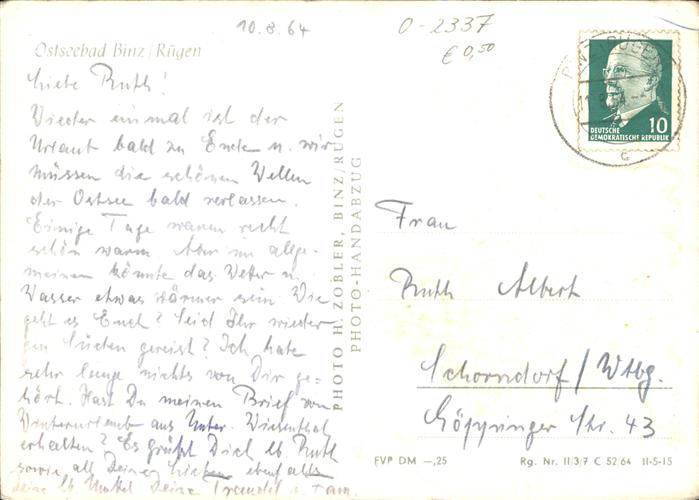 10.8.64
0-2337
€ 0,50
Ostseebad Binz/Rügen
Liebe Ruth!
Wieder einmal ist der
Urlaub bald zu Ende u. wir
müssen die schönen Wellen
der Ostsee bald verlassen.
Einige Tage waren recht
schön warm. Aber im allge-
meinen könnte das Wetter u.
Wasser etwas wärmer sein. Wie
geht es Euch? Seid Ihr wieder
gen Süden gereist? Ich habe
sehr lange nichts von Dir ge-
hört. Hast Du meinen Brief vom
Winterurlaub aus Unter. Wiesenthal
erhalten? Es grüßt Dich lb. Ruth
sowie all Deine Lieben ebenfalls
Deine Deine u. Fam.
PHOTO H. ZOBLER, BINZ/RÜGEN
PHOTO-HANDABZUG
BINZ (RÜGEN)
c
DEUTSCHE
DEMOKRATISCHE REPUBLIK
10
Frau
Ruth Albert
Schorndorf/Wtbg.
Göppinger Str. 43
EVP DM –,25
Rg. Nr. II/3/7 C 52/64 II-5-15